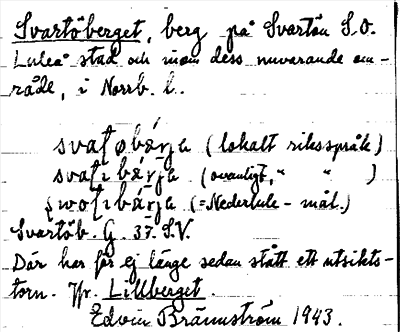 Svartöberget, berg på Svartön S.O.
Luleå stad och inom dess nuvarande om-
råde, i Norrb. l.
svaʈøbárja (lokalt riksspråk)
svaʈibárja (ovanligt, " ")
(=Nederlule-mål.)
Svartöb. G. 37. S.V.
Där har för ej länge sedan stått ett utsikts-
torn. Jfr. Lillberget.
Edvin Brännström 1943.